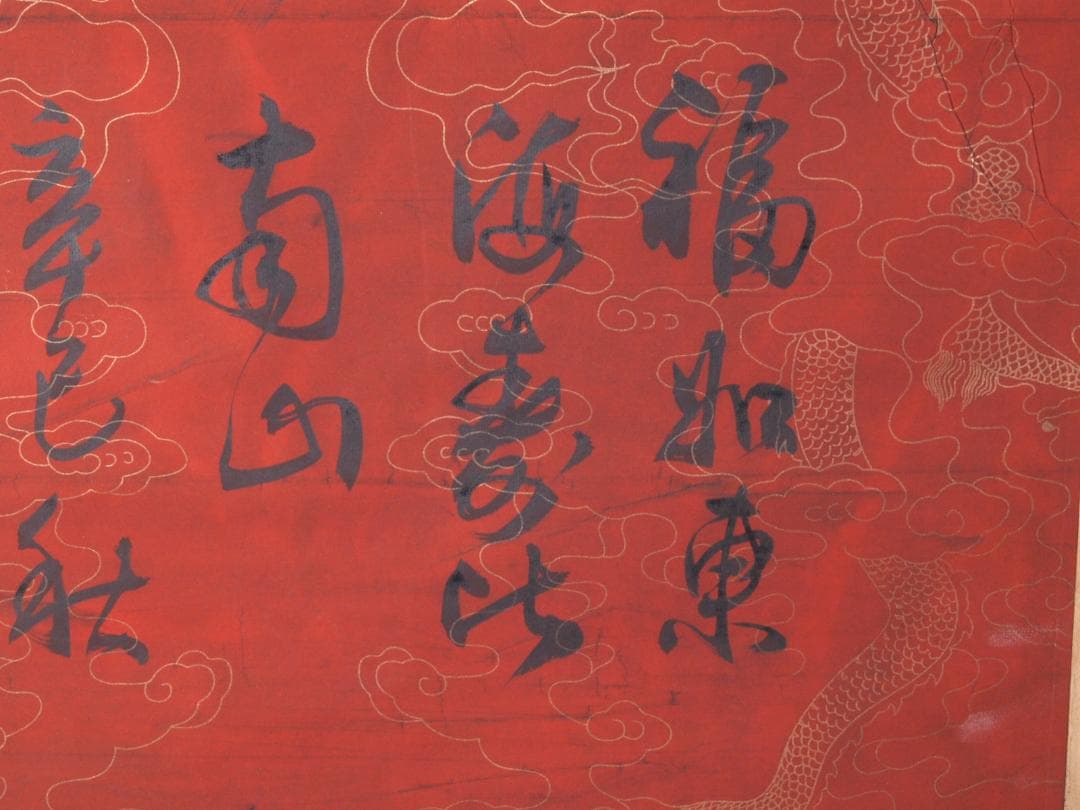 福如東
海壽比
南山
辛巳秋